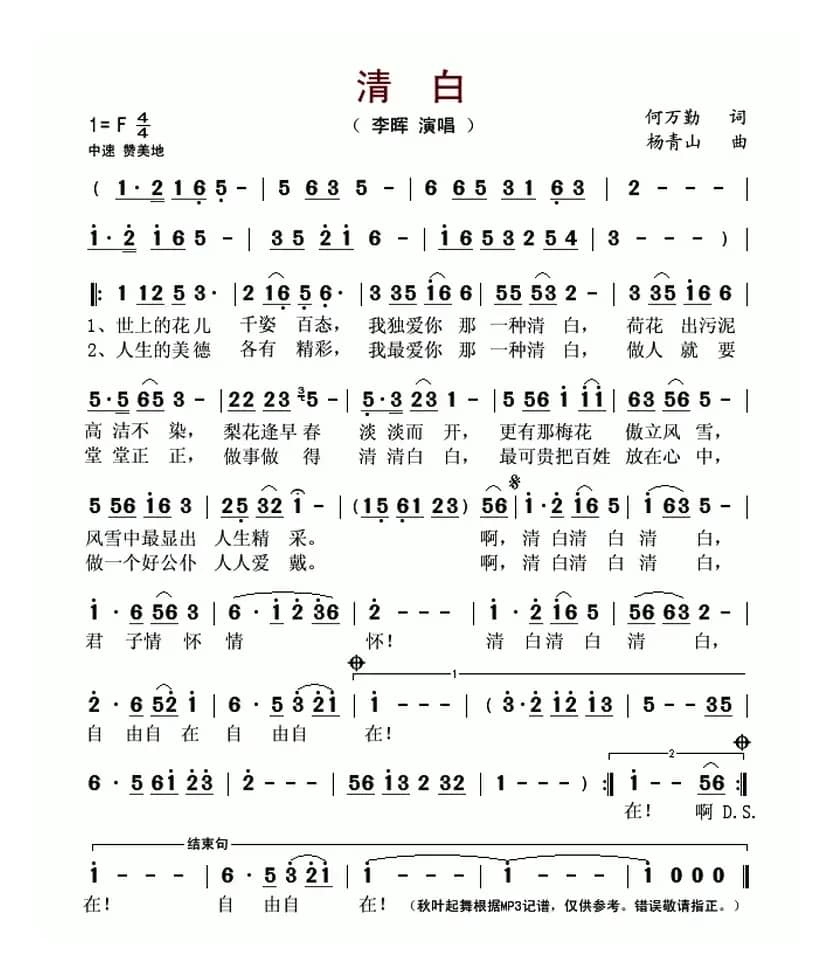 清 白
1= F 4/4
( 李晖 演唱 )
何万勤 词
中速 赞美地
杨青山 曲
( 1·2 1 6 5 - | 5 6 3 5 - - | 6 6 5 3 1 6 3 | 2 - - - |
1·2 1 6 5 - | 3 5 2 1 6 - | 1 6 5 3 2 5 4 | 3 - - - ) |
‖: 1 1 2 5 3· | 2 1 6 5 6· | 3 3 5 1 6 6 | 5 5 5 3 2 - | 3 3 5 1 6 5
1、世上的花儿 千姿 百态， 我独爱你 那 一种清 白， 荷花 出污泥
2、人生的美德 各有 精彩， 我最爱你 那 一种清 白， 做人 就 要
5·5 6 5 3 - | 2 2 2 3 3 2 5 - | 5·3 2 3 1 - | 5 5 6 1 1 1 | 6 3 5 6 5 - |
高 洁不 染， 梨花逢早 春 淡 淡而 开， 更有那梅花 傲立风 雪，
堂 堂正 正， 做事做 得 清 清白 白， 最可贵把百姓 放在心 中，
5 5 6 1 6 3 | 2 5 3 2 1 - | ( 1 5 6 1 2 3 ) 5 6 | 1·2 1 6 5 | 1 6 3 5 - |
风雪中最显出 人生精 采。 啊， 清 白清 白 清 白，
做一个好公仆 人人爱 戴。 啊， 清 白清 白 清 白，
1· 6 5 6 3 | 6· 1 2 3 6 | 2 - - - | 1· 2 1 6 5 | 5 6 6 3 2 - |
君 子情 怀 情 怀！ 清 白清 白 清 白，
1
2· 6 5 2 1 | 6· 5 3 2 1 | 1 - - - | ( 3·2 1 2 1 3 | 5 - - 3 5 |
自 由自 在 自 由自 在！
2
6· 5 6 1 2 3 | 2 - - - | 5 6 1 3 2 3 2 | 1 - - - ) :‖ 1 - - 5 6 :‖
在！ 啊 D.S.
结束句
1 - - - | 6· 5 3 2 1 | 1 - - - | 1 - - - | 1 0 0 0 ‖
在！ 自 由自 在！ （秋叶起舞根据MP3记谱，仅供参考。错误敬请指正。）